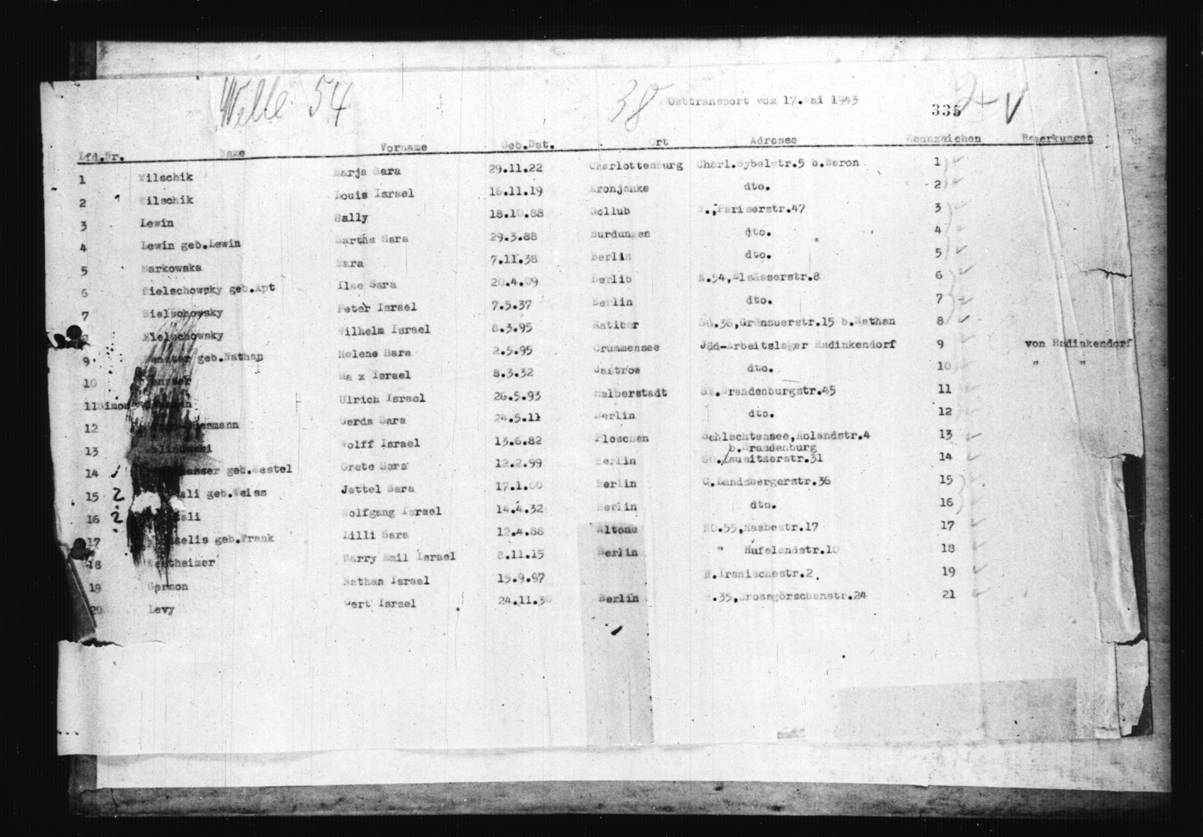 Welle 54 38 Osttransport vom 17. Mai 1943 335
Lfd.Nr. Name Vorname Geb.Dat. Ort Adresse Kennzeichen Bemerkungen
1 Wilschik Marja Sara 29.11.22 Charlottenburg Charl.Sybelstr.5 b.Beron 1
2 Wilschik Louis Israel 16.11.19 Kronjanke dto. 2
3 Lewin Sally 18.10.88 Gollub W.,Pariserstr.47 3
4 Lewin geb.Lewin Martha Sara 29.3.88 Burdungen dto. 4
5 Markowska 7.11.38 Berlin dto. 5
6 Bielschowsky geb.Apt Ilse Sara 20.4.09 Berlib N.54,Elsasserstr.8 6
7 Bielschowsky Peter Israel 7.5.37 Berlin dto. 7
Bielschowsky Wilhelm Israel 8.3.95 Ratibor SO.36,Grünauerstr.15 b.Nathan 8
9 geb.Nathan Helene Sara 2.5.95 Crummensee Jüd-Arbeitslager Radinkendorf 9 von Radinkendorf
10 Max Israel 8.3.32 Jastrow dto. 10 " "
11 Ulrich Israel 26.5.93 Halberstadt Brandenburgstr.45 11
12 Gerda Sara 24.5.11 Berlin dto. 12
13 Wolff Israel 13.6.82 Pleschen Schlachtensee,Rolandstr.4 13
b.Brandenburg
14 geb.Westel Grete Sara 12.2.99 Berlin SO.Lausitzerstr.31 14
15 ? geb.Weiss Jettel Sara 17.1.00 Berlin C.Landsbergerstr.36 15
16 ? Wolfgang Israel 14.4.32 Berlin dto. 16
17 geb.Frank Lilli Sara 12.4.88 Altona NO.55,Rasbestr.17 17
18 Wertheimer Harry Emil Israel 8.11.15 Berlin " Hufelandstr.10 18
19 Germon Nathan Israel 15.9.97 N.Iranischestr.2. 19
20 Levy Gert Israel 24.11.3 Berlin W.35,Grossgörschenstr.24 21